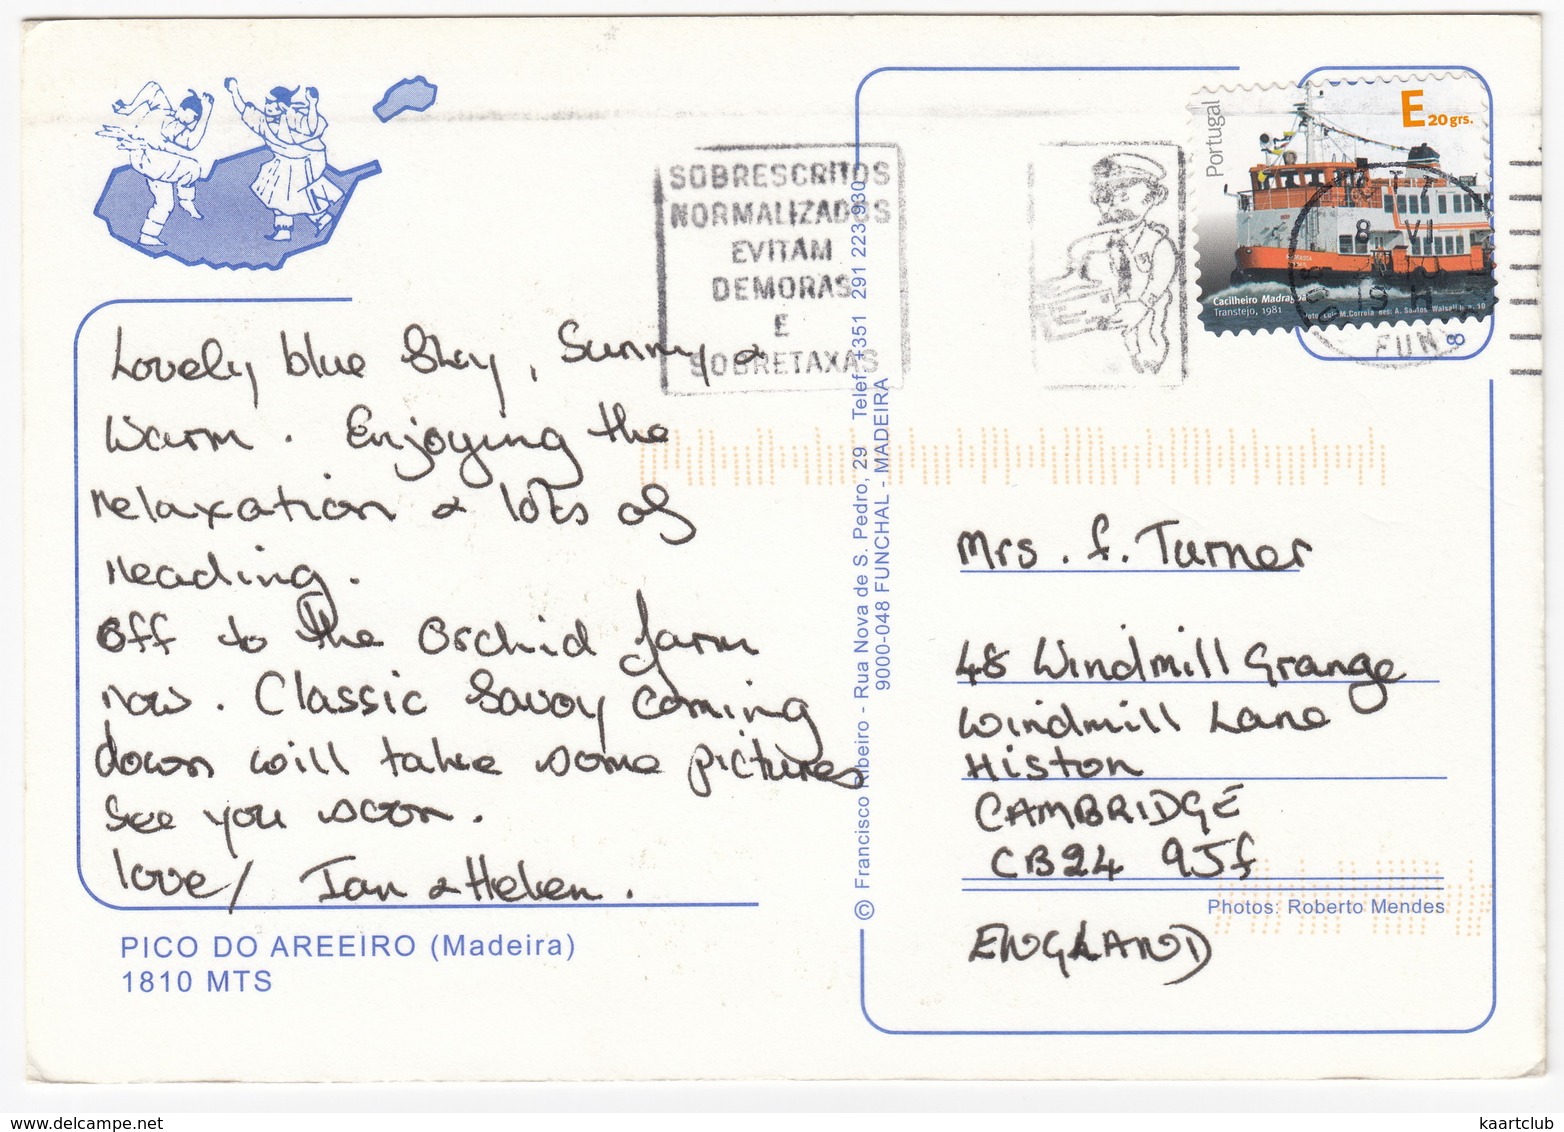 SOBRESCRITOS
NORMALIZADOS
EVITAM
DEMORAS
E
SOBRETAXAS
Portugal
E 20 grs.
Cacilheiro Madragoa
Transtejo, 1981
8 VI
19 H
FUN
8
Lovely blue sky, Sunny &
warm. Enjoying the
relaxation & lots of
reading.
Off to the orchid farm
now. Classic Savoy coming
down will take some pictures
See you soon.
love/ Ian & Helen.
PICO DO AREEIRO (Madeira)
1810 MTS
© Francisco Ribeiro - Rua Nova de S. Pedro, 29 Telef. +351 291 223 930
9000-048 FUNCHAL - MADEIRA
Mrs. f. Turner
48 Windmill Grange
Windmill Lane
Histon
CAMBRIDGE
CB24 9Jf
Photos: Roberto Mendes
ENGLAND
kaartclub